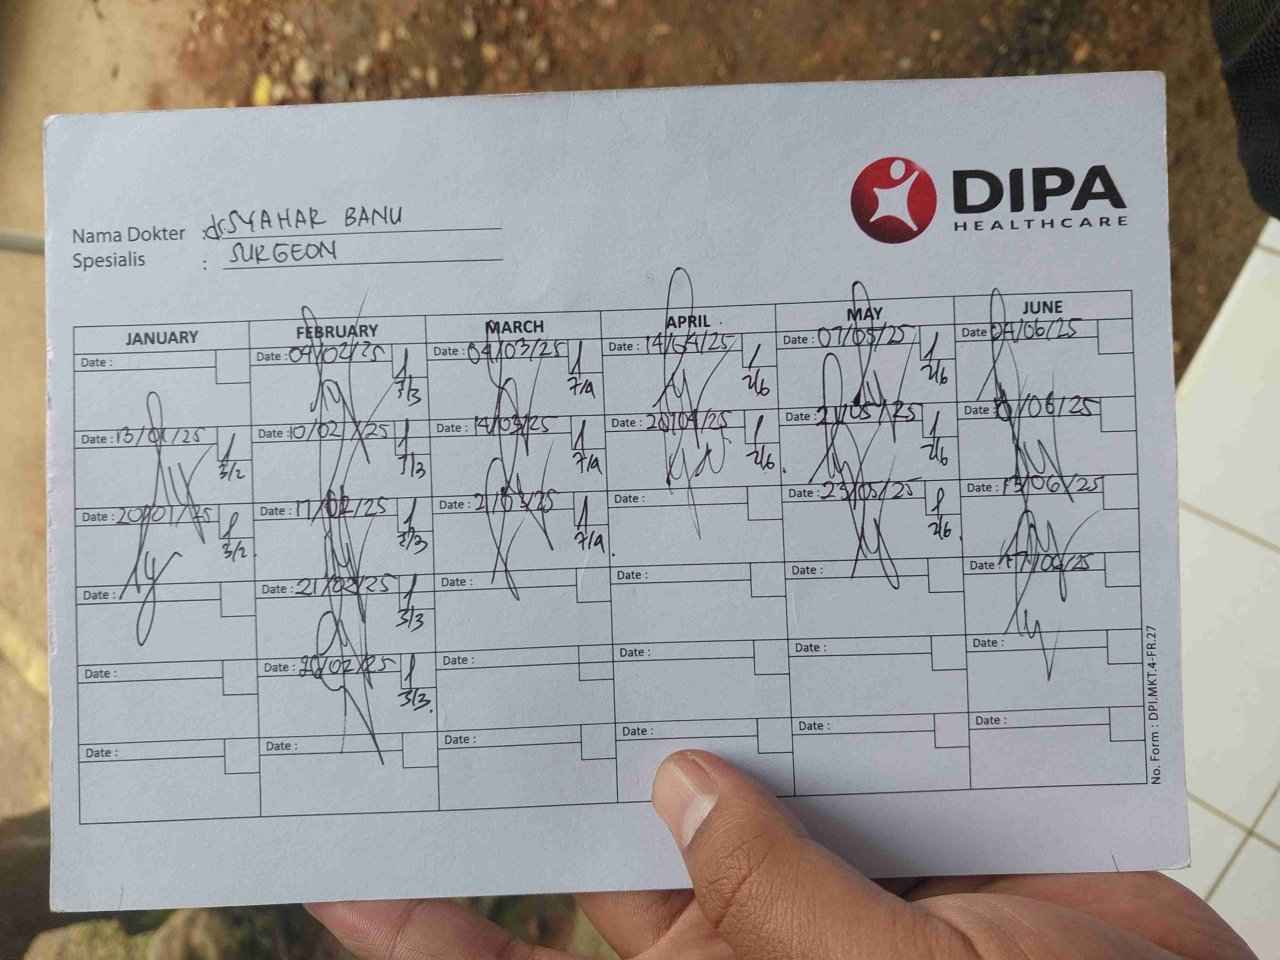 DIPA
HEALTHCARE
Nama Dokter : dr SYAHAR BANU
Spesialis : SURGEON
JANUARY FEBRUARY MARCH APRIL MAY JUNE
Date : Date : 04/02/25 Date : 04/03/25 Date : 14/04/25 Date : 07/05/25 Date : 04/06/25
7/3 7/4 2/6 2/6
Date : 13/01/25 Date : 10/02/25 Date : 14/03/25 Date : 20/04/25 Date : 21/05/25 Date : /06/25
3/2 7/3 7/4 2/6 2/6
Date : 20/01/25 Date : 17/02/25 Date : 21/03/25 Date : Date : 23/05/25 Date : 13/06/25
3/2 3/3 7/4 2/6
Date : Date : 21/02/25 Date : Date : Date : Date : 17/06/25
3/3
Date : Date : 20/02/25 Date : Date : Date : Date :
3/3
Date : Date : Date : Date : Date : Date :
No. Form : DPI.MKT.4-FR.27